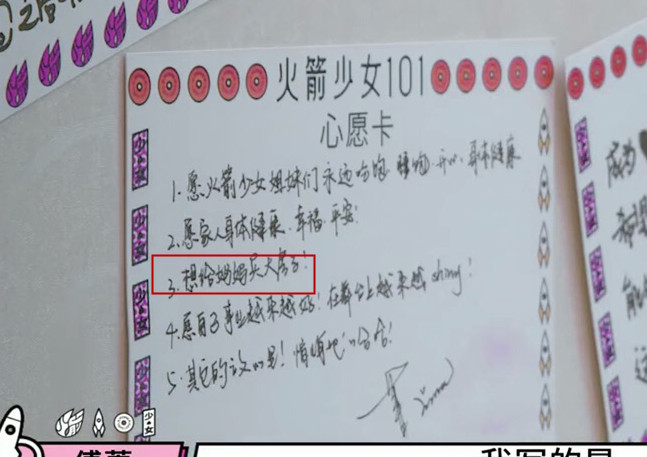 火箭少女101
心愿卡
1.愿火箭少女姐妹们永远吃饱 睡饱 开心 身体健康
2.愿家人身体健康、幸福 平安!
3.想给妈妈买大房子!
4.愿自己事业越来越好!在舞台上越来越shing!
5.其它的没心思!悄悄地
少女
少女
少女
少女
成为
能
这
傅菁
我写的是